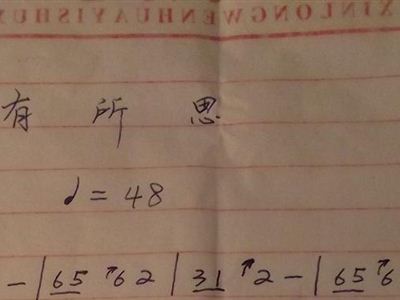 XINLONGWENHUAYISHU
有所思
♩= 48
– | 65 ↑6 2 | 31 ↑2 – | 65 ↑6